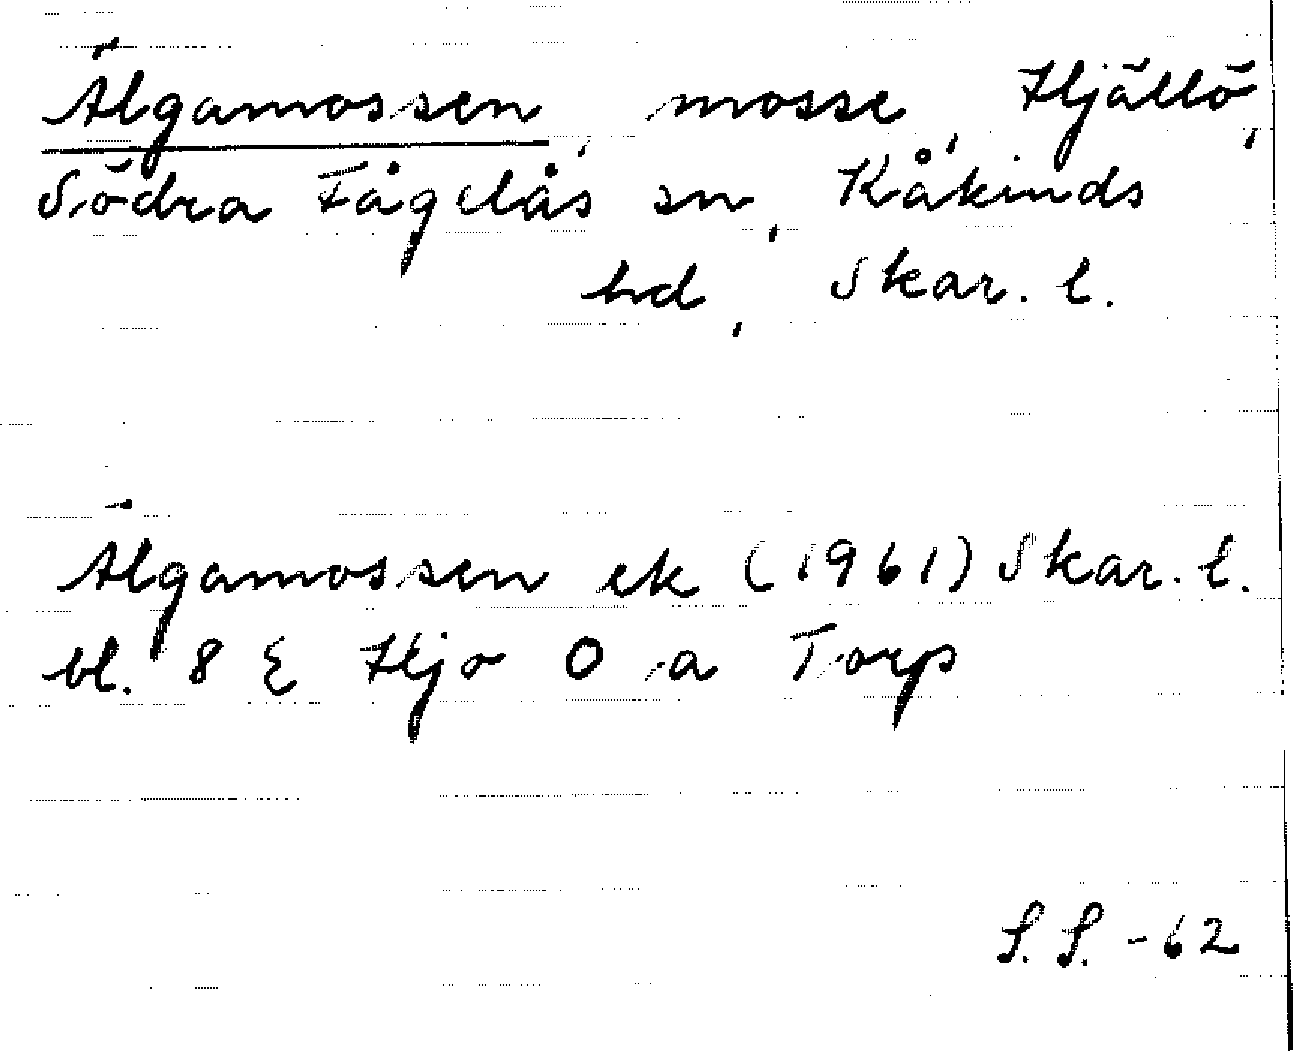 Älgamossen, mosse, Hjällö,
Södra Fågelås sn, Kåkinds
hd, Skar. l.
Älgamossen ek (1961) Skar. l.
bl. 8 E Hjo O a Torp
S. S. -62